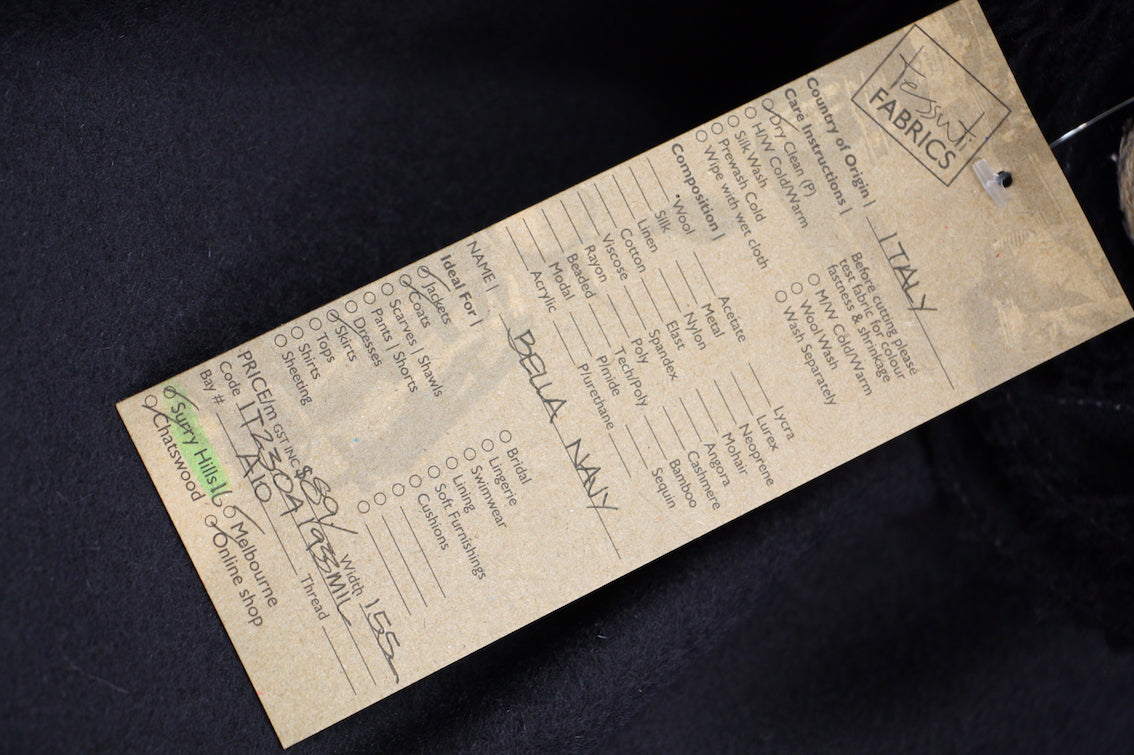 tessuti
FABRICS
Country of Origin | ITALY
Care Instructions |
Dry Clean (P)
H/W Cold/Warm
Silk Wash
Prewash Cold
Wipe with wet cloth
Before cutting please
test fabric for colour
fastness & shrinkage
M/W Cold/Warm
Wool Wash
Wash Separately
Composition |
Wool
Silk
Linen
Cotton
Viscose
Rayon
Beaded
Modal
Acrylic
Acetate
Metal
Nylon
Elast
Spandex
Poly
Tech/Poly
P/mide
P/urethane
Lycra
Lurex
Neoprene
Mohair
Angora
Cashmere
Bamboo
Sequin
NAME | BELLA NAVY
Ideal For |
Jackets
Coats
Scarves | Shawls
Pants | Shorts
Dresses
Skirts
Tops
Shirts
Sheeting
Bridal
Lingerie
Swimwear
Lining
Soft Furnishings
Cushions
PRICE/m GST INC $89/ Width 155
Code IT2304193MIL
Bay # A10 Thread
Surry Hills Melbourne
Chatswood Online shop